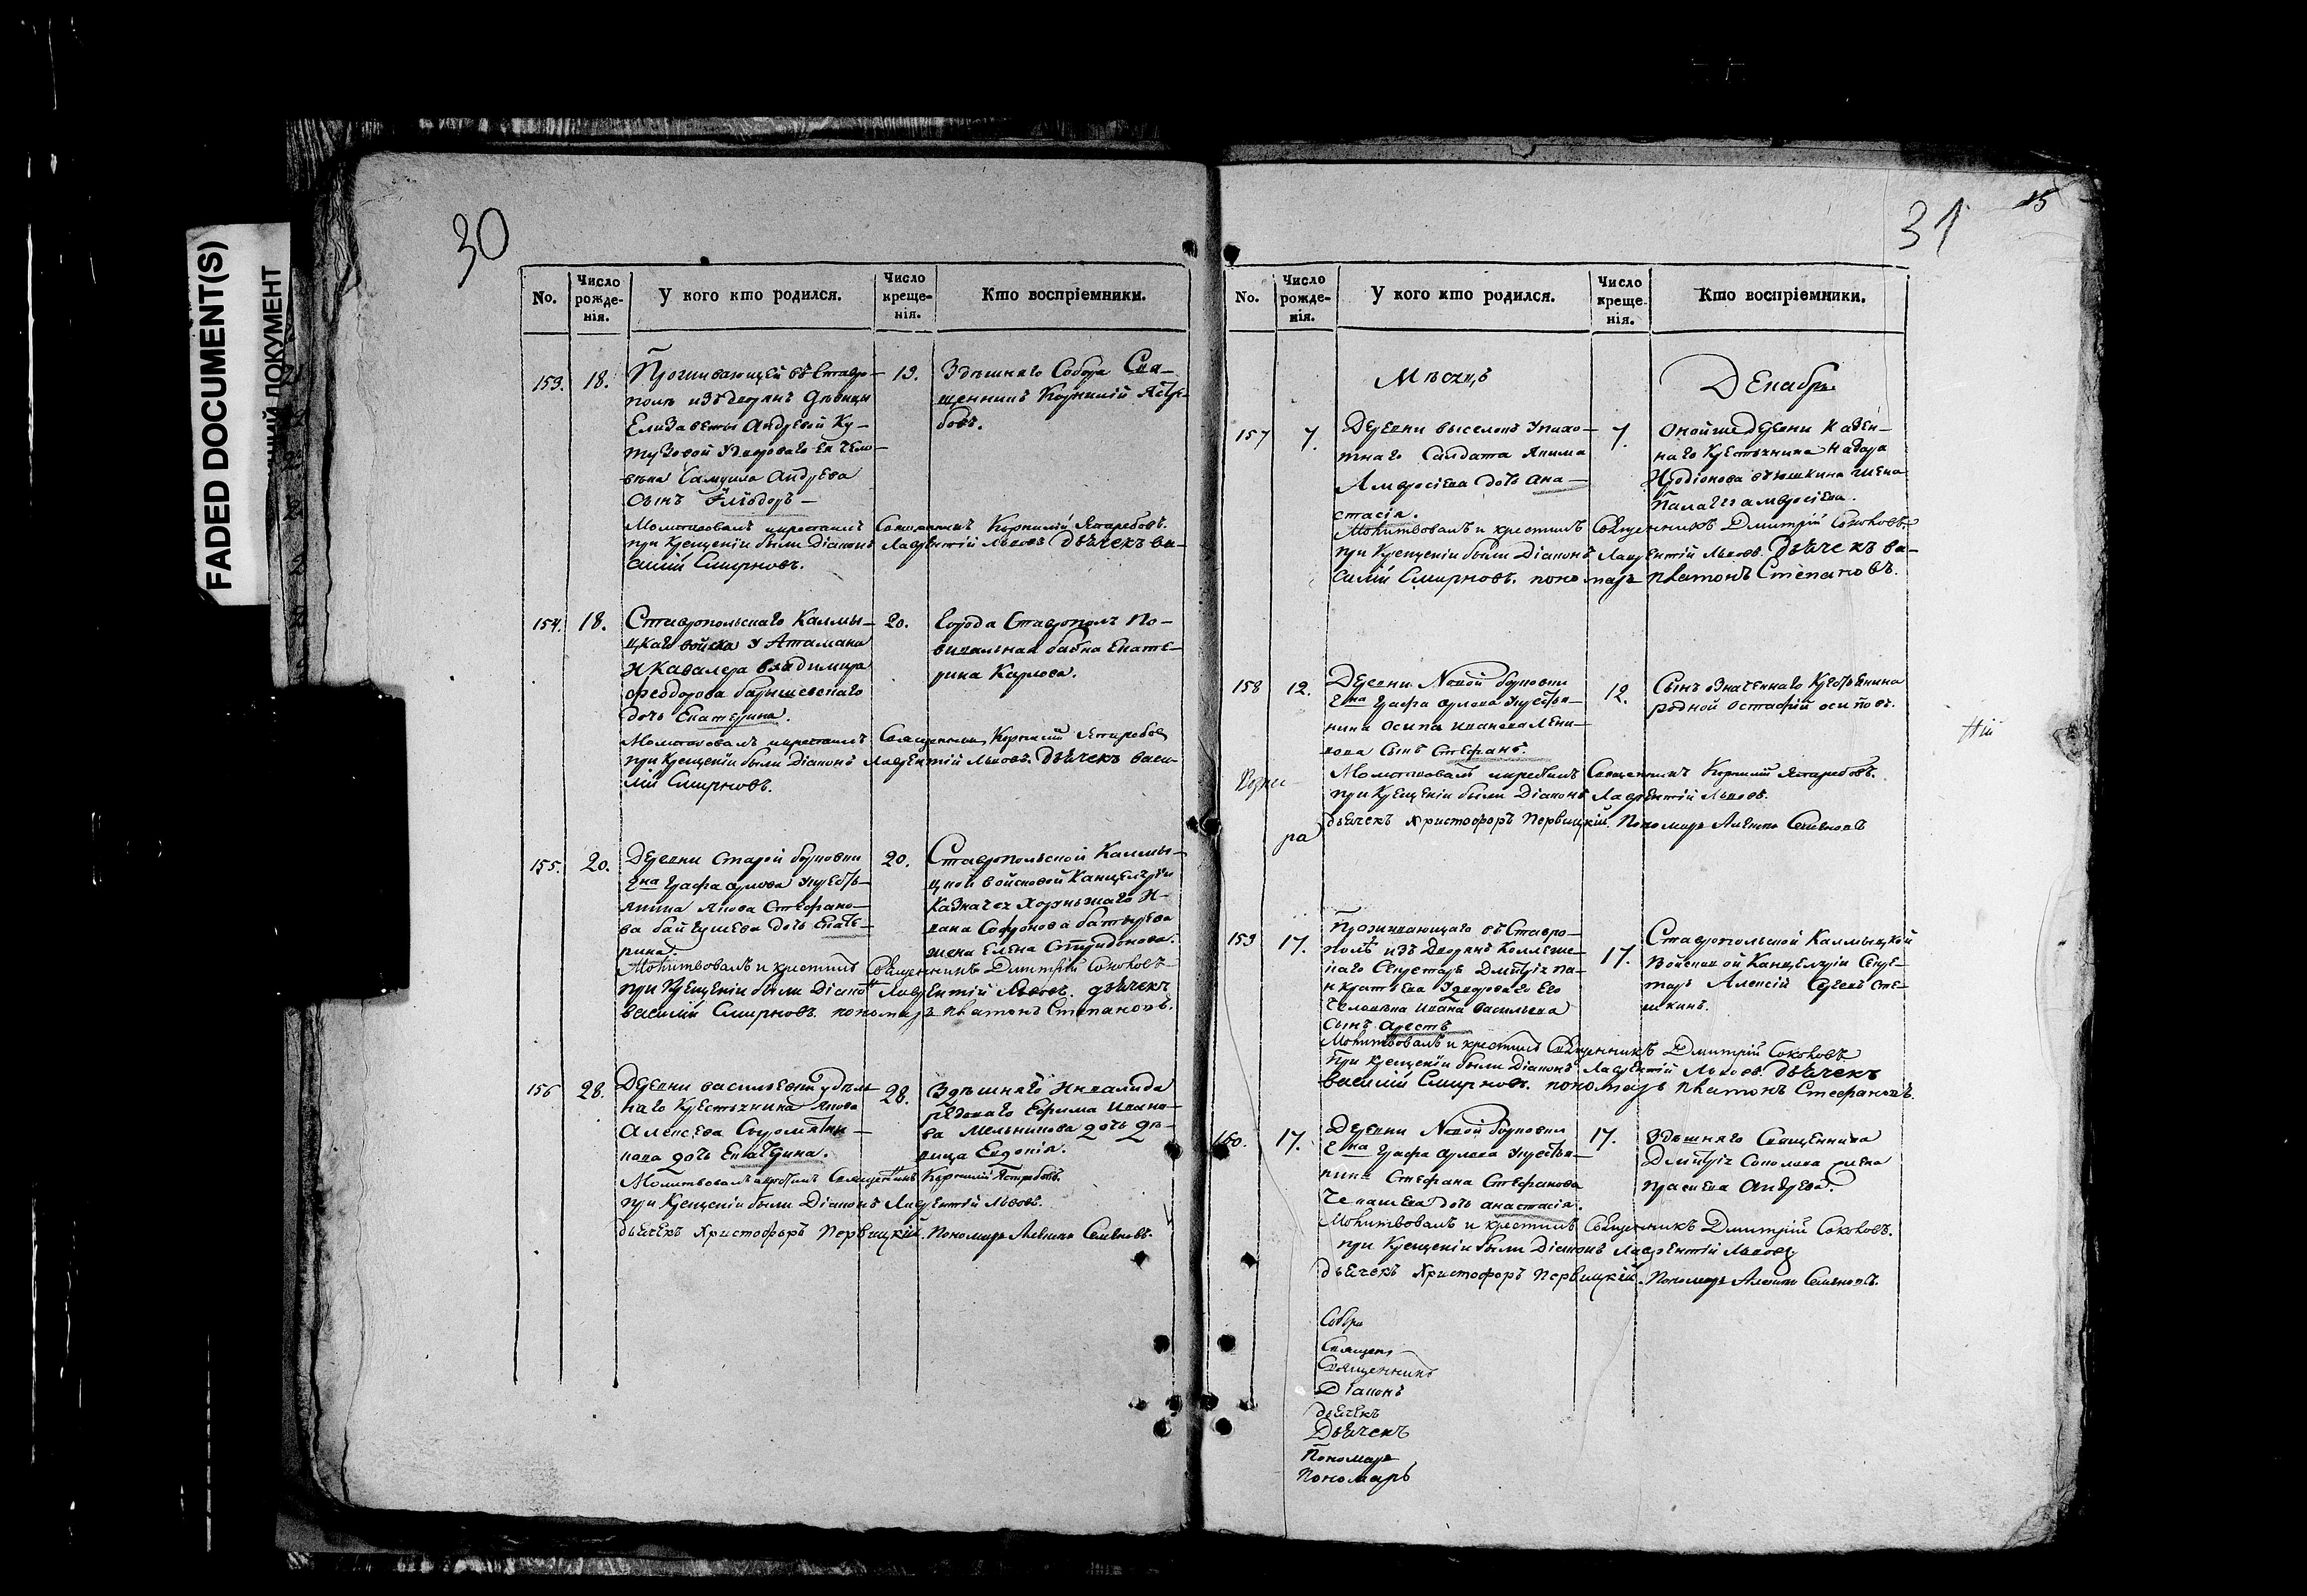 FADED DOCUMENT(S)
ДОКУМЕНТ
30
No.
Число рожде-нія.
У кого кто родился.
Число креще-нія.
Кто воспріемники.
153. 18.
Проживающей въ Ставро-
полѣ изъ дворянъ Дѣвицы
Елизаветы Андреевой Ку-
тузовой удвороваго ея чело-
вѣка Самуила Андреева
сынъ
13.
Здѣшняго Собора Свя-
щенникъ Корнилій Ястре-
бовъ.
Молитвовалъ икрестилъ Священникъ Корнилій Ястребовъ.
при крещеніи были Діаконъ Лаврентій Львовъ Дьячекъ Ва-
силій Смирновъ.
154. 18.
Ставропольскаго Калмы-
цкаго войска у Атамана
И Кавалера Владимира
Феодорова
дочь Екатерина.
20.
города Ставрополя По-
вивальная бабка Екате-
рина Карлова.
Молитвовалъ икрестилъ Священникъ Корнилій Ястребовъ
при крещеніи были Діаконъ Лаврентій Львовъ. Дьячекъ Васи-
лій Смирновъ.
155. 20.
Деревни Старой
Графа Орлова укрестья-
нина Якова Стефано-
ва дочь Екате-
рина.
20.
Ставропольской Калмы-
цкой войсковой Канцеляріи
Казначея Хорунжаго И-
вана Софронова
жена Елена Спиридонова.
Молитвовалъ и крестилъ Священникъ Димитрій Соколовъ
при крещеніи были Діаконъ Лаврентій Львовъ. дьячекъ
василій Смирновъ. пономарь платонъ Степановъ.
156 28.
Деревни васильевки удѣль-
наго Крестьянина Якова
Алексѣева
дочь Екатерина.
28.
Здѣшняго Инвалида
рядоваго Ефима Ивано-
ва Мельникова дочь дѣ-
вица Евдокія.
Молитвовалъ икрестилъ Священникъ Корнилій Ястребовъ.
при Крещеніи были Діаконъ Лаврентій Львовъ.
дьячекъ Христофоръ Первицкій. Пономарь Семеновъ.
31
15
No.
Число рожде-нія.
У кого кто родился.
Число креще-нія.
Кто воспріемники.
Мѣсяцъ
Декабрь
157 7.
Деревни выселокъ упахо-
тнаго Солдата Якима
Амвросіева дочь Ана-
стасія.
7.
Онойже деревни Казен-
наго Крестьянина
Иродіонова жена
Палагея амвросіева.
Молитвовалъ и крестилъ Священникъ Дмитрій Соколовъ
при крещеніи были Діаконъ Лаврентій Львовъ. Дьячекъ Ва-
силій Смирновъ. пономарь платонъ Степановъ.
158 12.
Деревни Новой
Графа орлова укрестья-
нина осипа иванова
сынъ Стефанъ.
12.
Сынъ означеннаго Крестьянина
родной остафій осиповъ.
Молитвовалъ икрестилъ Священникъ Корнилій Ястребовъ.
при Крещеніи были Діаконъ Лаврентій Львовъ.
дьячекъ Христофоръ Первицкій. Пономарь Семеновъ
ра
159 17.
Проживающаго въ Ставро-
полѣ изъ Дворянъ Коллежс-
каго Секретаря Дмитрія Па-
нкратьева удвороваго Его
человѣка Ивана Васильева
сынъ Орестъ
17.
Ставропольской Калмыцкой
Войсковой Канцеляріи Секре-
тарь Алексій
Молитвовалъ и крестилъ Священникъ Дмитрій Соколовъ
При крещеніи были Діаконъ Лаврентій Львовъ. Дьячекъ
василій Смирновъ. пономарь платонъ Стефановъ.
160. 17.
Деревни Новой
Графа орлова укрестья-
нина Стефана Стефанова
дочь анастасія.
17.
Здѣшняго Священника
Дмитрія Соколова жена
Андреева.
Молитвовалъ и крестилъ Священникъ Дмитрій Соколовъ.
при Крещеніи были Діаконъ Лаврентій Львовъ
дьячекъ Христофоръ Первицкій. Пономарь Семеновъ.
Священ
Священникъ
Діаконъ
дьячекъ
Дьячекъ
Пономарь
Пономарь